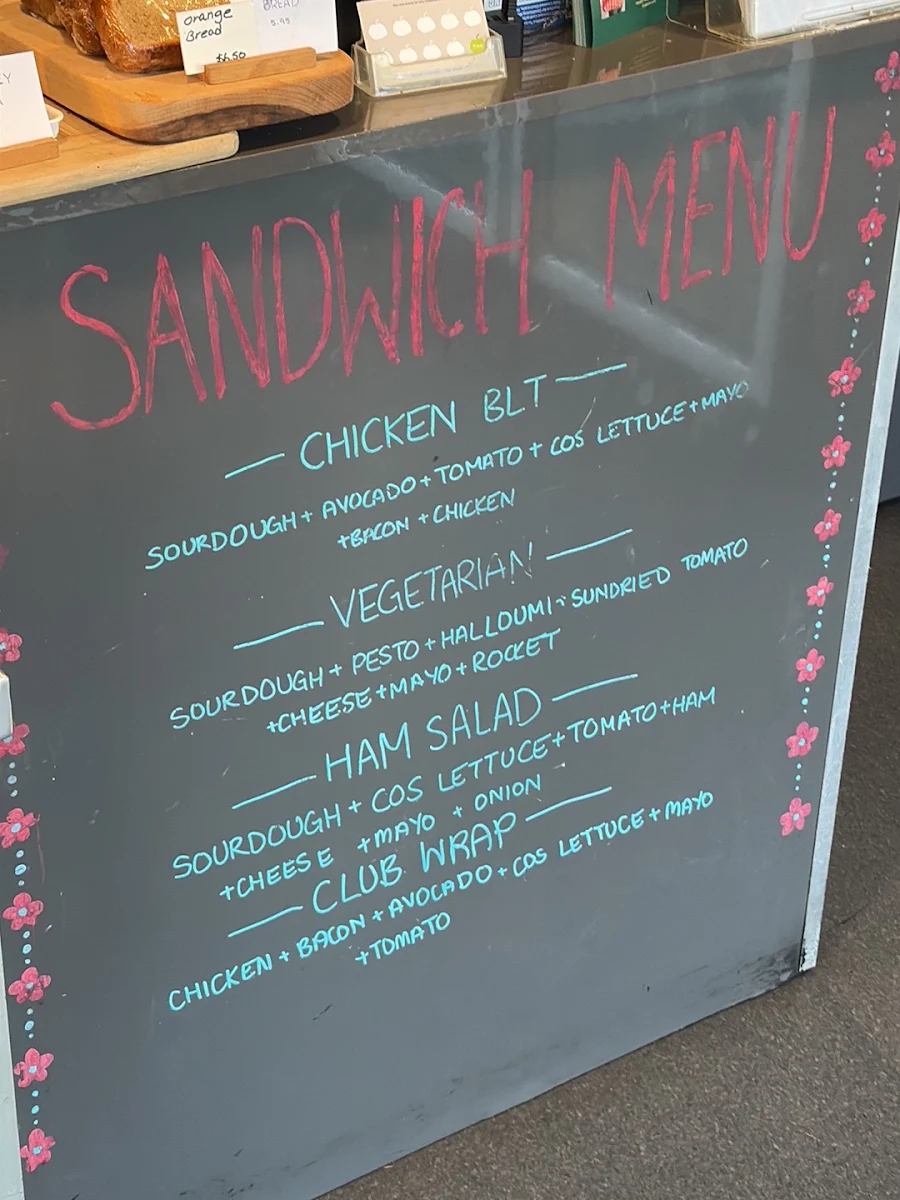 orange
Bread
$6.50
BREAD
SANDWICH MENU
CHICKEN BLT
SOURDOUGH + AVOCADO + TOMATO + COS LETTUCE + MAYO
+BACON + CHICKEN
VEGETARIAN
SOURDOUGH + PESTO + HALLOUMI + SUNDRIED TOMATO
+CHEESE + MAYO + ROCKET
HAM SALAD
SOURDOUGH + COS LETTUCE + TOMATO + HAM
+CHEESE + MAYO + ONION
CLUB WRAP
CHICKEN + BACON + AVOCADO + COS LETTUCE + MAYO
+TOMATO